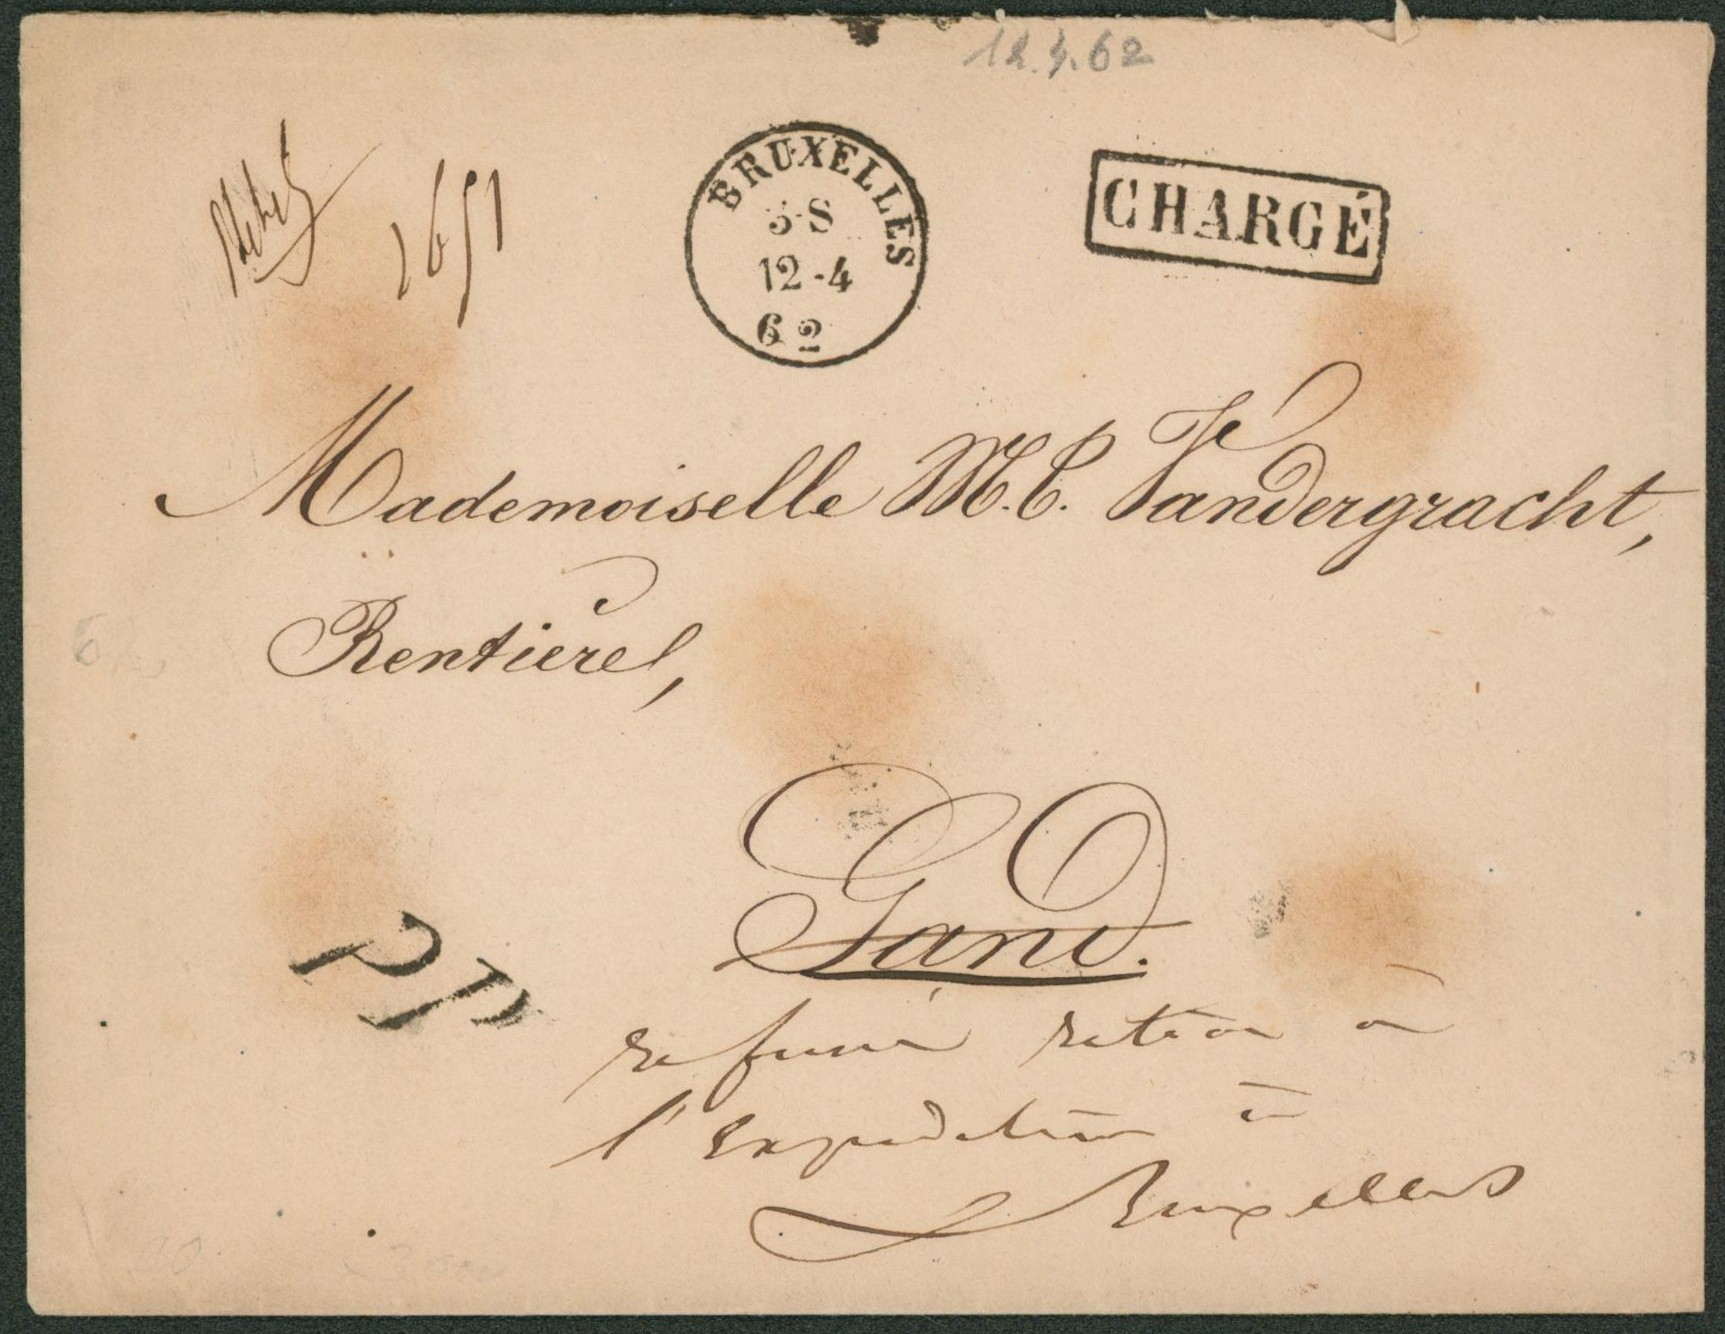 12.4.62
1651
BRUXELLES
3-S
12-4
62
CHARGÉ
Mademoiselle M.C. Vandergracht,
Rentière,
Gand.
PP
refusé retour à
l'expéditeur à
Bruxelles